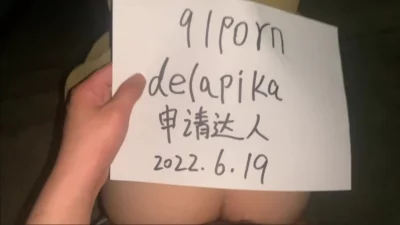 91porn
delapika
申请达人
2022.6.19